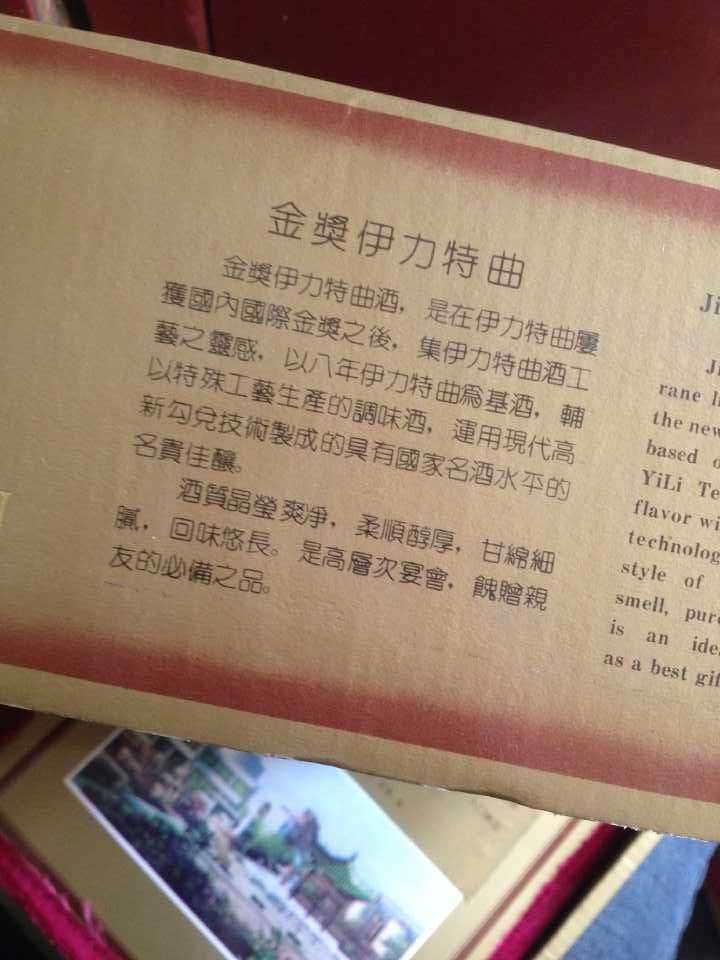 金獎伊力特曲
金獎伊力特曲酒，是在伊力特曲屢
獲國內國際金獎之後，集伊力特曲酒工
藝之靈感，以八年伊力特曲爲基酒，輔
以特殊工藝生産的調味酒，運用現代高
新勾兌技術製成的具有國家名酒水平的
名貴佳釀。
酒質晶瑩爽净，柔順醇厚，甘綿細
膩，回味悠長。是高層次宴會，餽贈親
友的必備之品。
Ji
Ji
rane li
the new
based o
YiLi Te
flavor wi
technolog
style of
smell, pure
is an idea
as a best gif